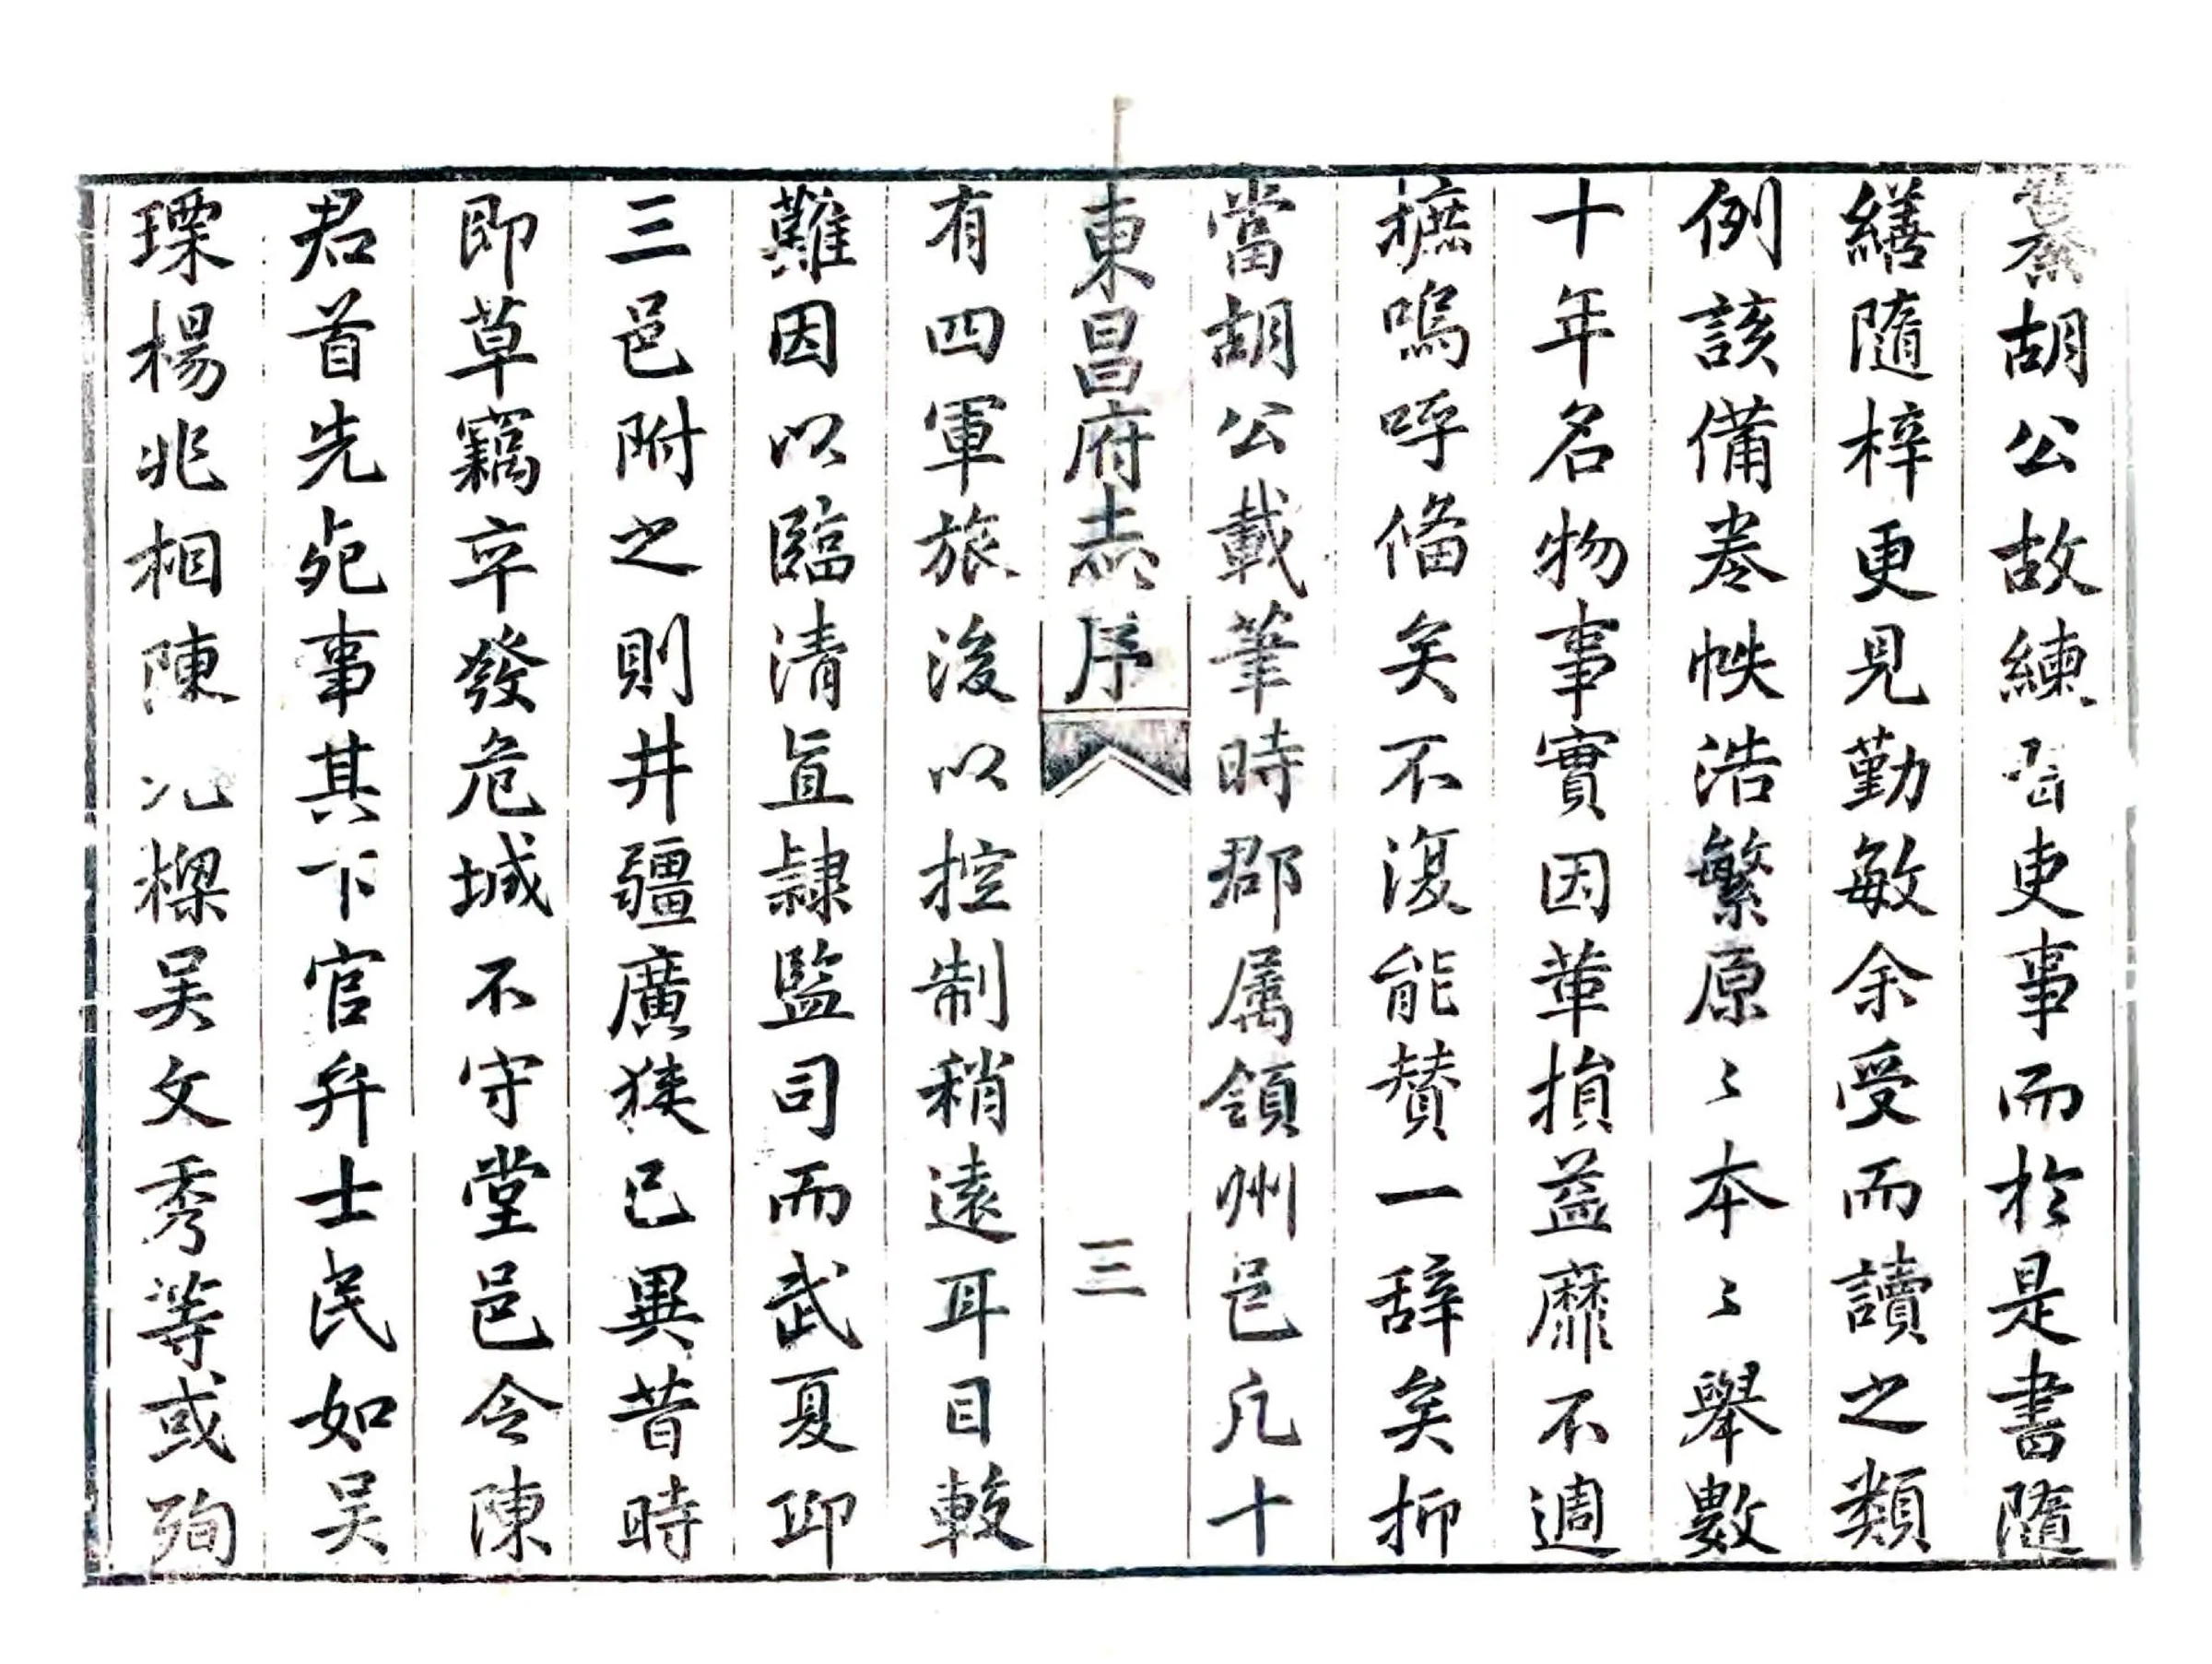 纂胡公故練習吏事而於是書隨
繕隨梓更見勤敏余受而讀之類
例該備卷帙浩繁原〻本〻舉數
十年名物事實因革損益靡不週
摭嗚呼俻矣不復能賛一辞矣抑
當胡公載筆時郡属領州邑凢十
東昌府志序
三
有四軍旅後以控制稍遠耳目較
難因以臨清直隷監司而武夏邱
三邑附之則井疆廣狹已異昔時
即草竊卒發危城不守堂邑令陳
君首先死事其下官弁士民如吴
瑮楊兆相陳元樑吴文秀等或殉